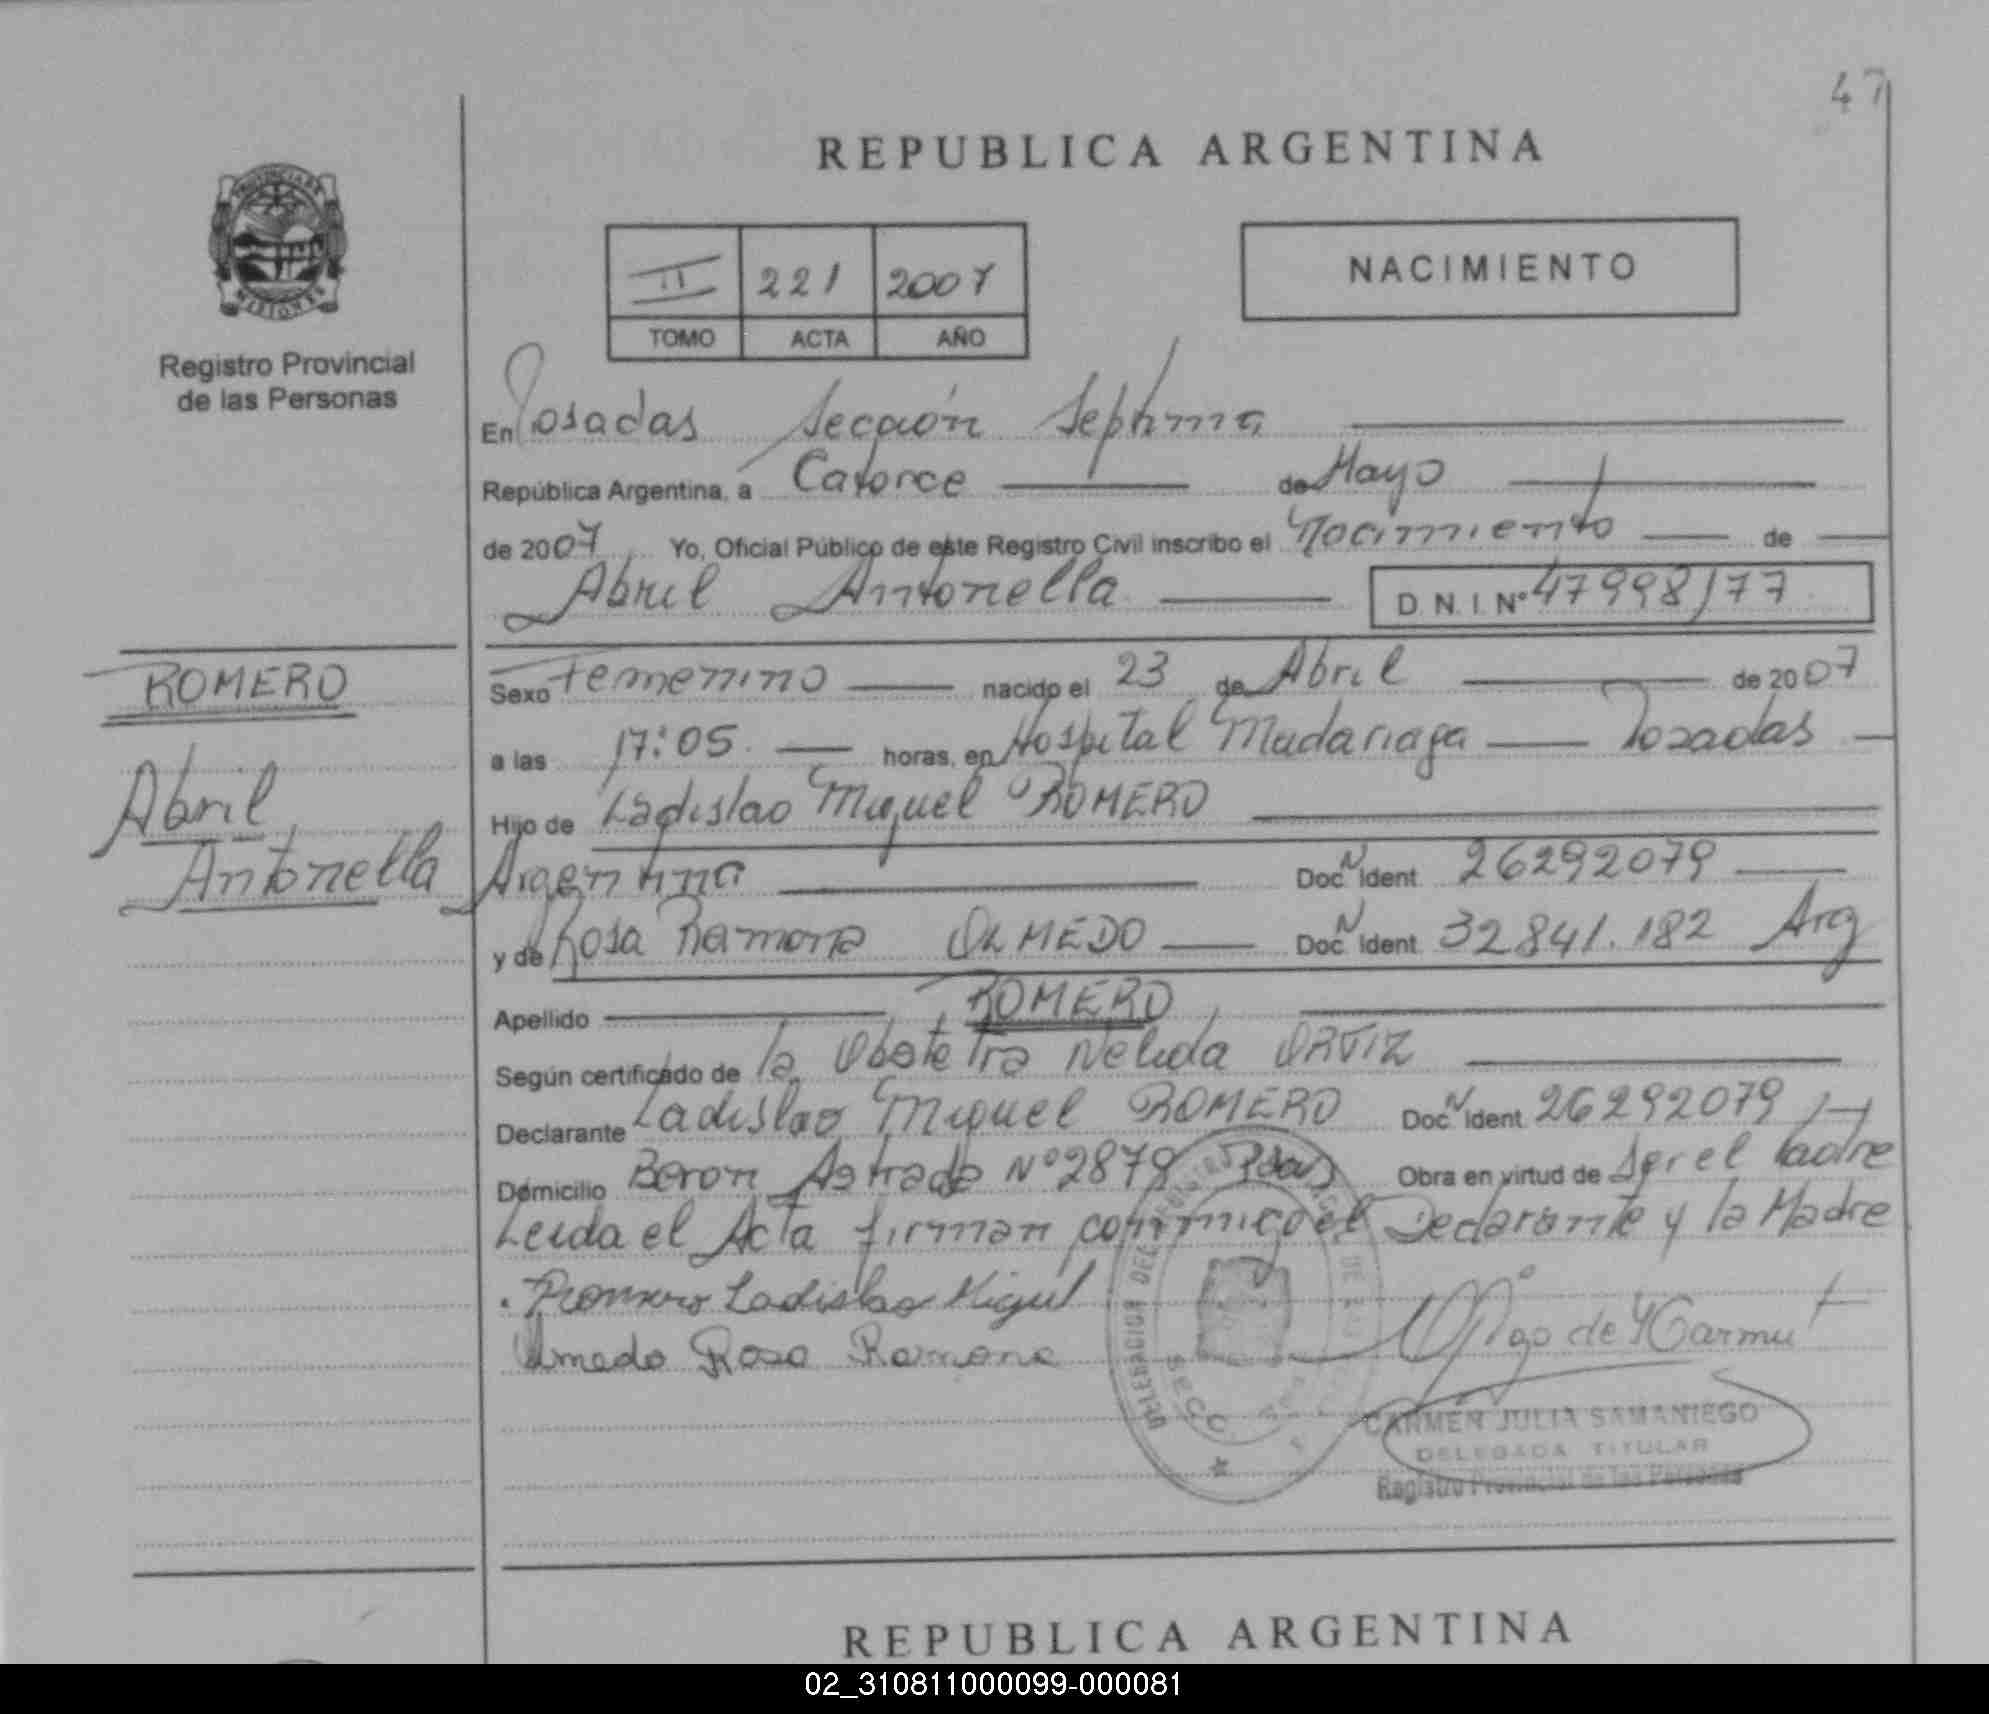 47
REPUBLICA ARGENTINA
II 221 2007
TOMO ACTA AÑO
NACIMIENTO
PROVINCIA DE
MISIONES
Registro Provincial
de las Personas
En Posadas Sección Septima
República Argentina, a Catorce de Mayo
de 2007 Yo, Oficial Público de este Registro Civil inscribo el Nacimiento de
Abril Antonella D.N.I. Nº 47998177
ROMERO
Abril
Antonella
Sexo Femenino nacido el 23 de Abril de 2007
a las 17:05 horas, en Hospital Madariaga Posadas
Hijo de Ladislao Miguel ROMERO
Argentina Doc. N Ident 26292079
y de Rosa Ramona OLMEDO Doc. N Ident 32841.182 Arg
Apellido ROMERO
Según certificado de la Obstetra Nelida ORTIZ
Declarante Ladislao Miguel ROMERO Doc. N Ident 26292079
Domicilio Beron Astrada Nº 2879 Pdas Obra en virtud de Ser el Padre
Leida el Acta firman conmigo el Declarante y la Madre
Romero Ladislao Miguel
Olmedo Rosa Ramona
CARMEN JULIA SAMANIEGO
DELEGADA TITULAR
Registro Provincial de las Personas
REPUBLICA ARGENTINA
02_310811000099-000081